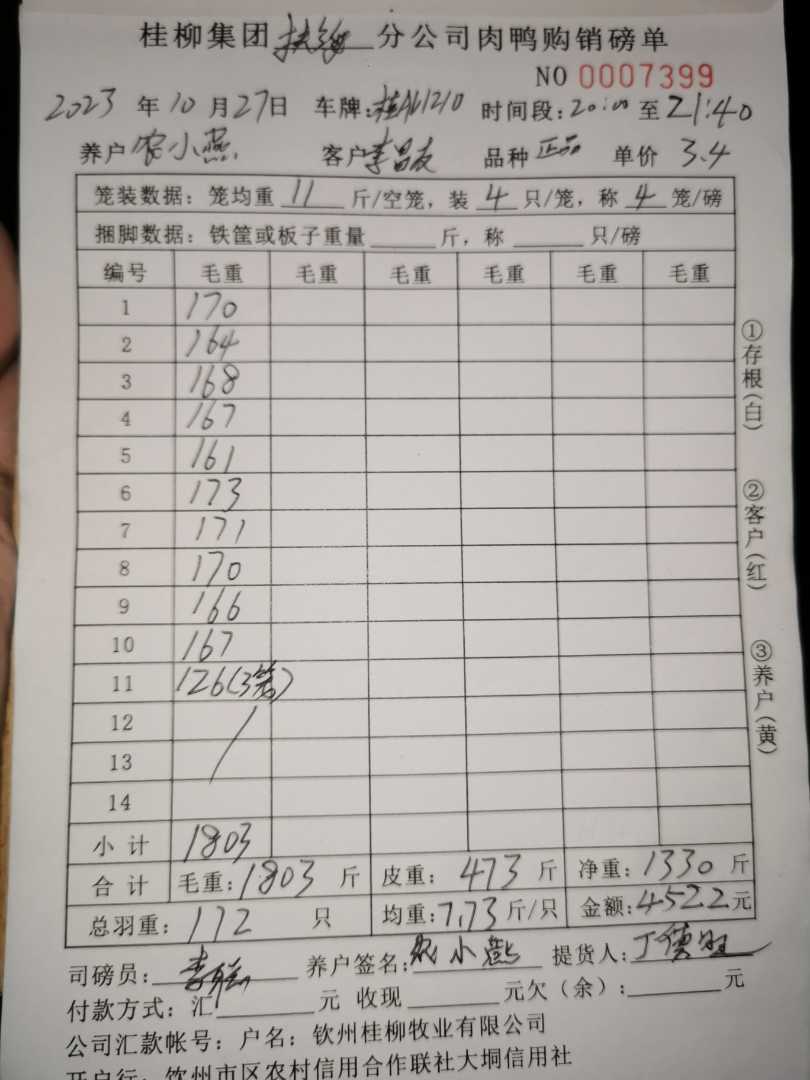 桂柳集团扶绥分公司肉鸭购销磅单
NO 0007399
2023 年 10 月 27 日 车牌: 1210 时间段: 20:00 至 21:40
养户 农小燕 客户 李昌友 品种 正品 单价 3.4
笼装数据: 笼均重 11 斤/空笼, 装 4 只/笼, 称 4 笼/磅
捆脚数据: 铁筐或板子重量______斤, 称______只/磅
编号 毛重 毛重 毛重 毛重 毛重 毛重
1 170
2 164
3 168
4 167
5 161
6 173
7 171
8 170
9 166
10 167
11 126(3笼)
12
13
14
小 计 1803
合 计 毛重: 1803 斤 皮重: 473 斤 净重: 1330 斤
总羽重: 172 只 均重: 7.73 斤/只 金额: 4522 元
司磅员: 李 养户签名: 农小燕 提货人: 丁德旺
付款方式: 汇______元 收现______元欠(余):______元
公司汇款帐号: 户名: 钦州桂柳牧业有限公司
开户行: 钦州市区农村信用合作联社大垌信用社
①存根(白)
②客户(红)
③养户(黄)